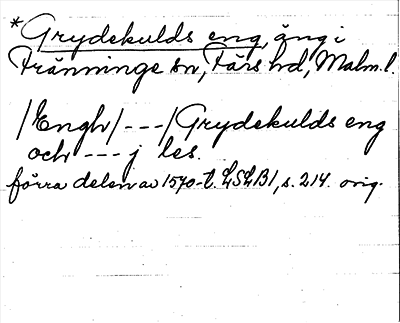 *Grydekulds eng, äng i
Tränninge sn, Färs hd, Malm. l.
/Engh/---/Grydekulds eng
och --- j les.
förra delen av 1570-t. LSLB1, s. 214. orig.